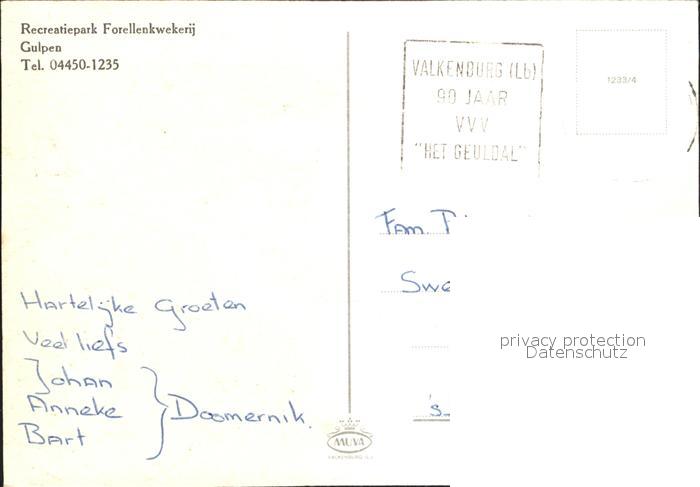 Recreatiepark Forellenkwekerij
Gulpen
Tel. 04450-1235
VALKENBURG (Lb)
90 JAAR
VVV
"HET GEULDAL"
1233/4
Fam.
Hartelijke Groeten
Veel liefs
Johan
Anneke
Bart
Doomernik.
MUVA
privacy protection
Datenschutz